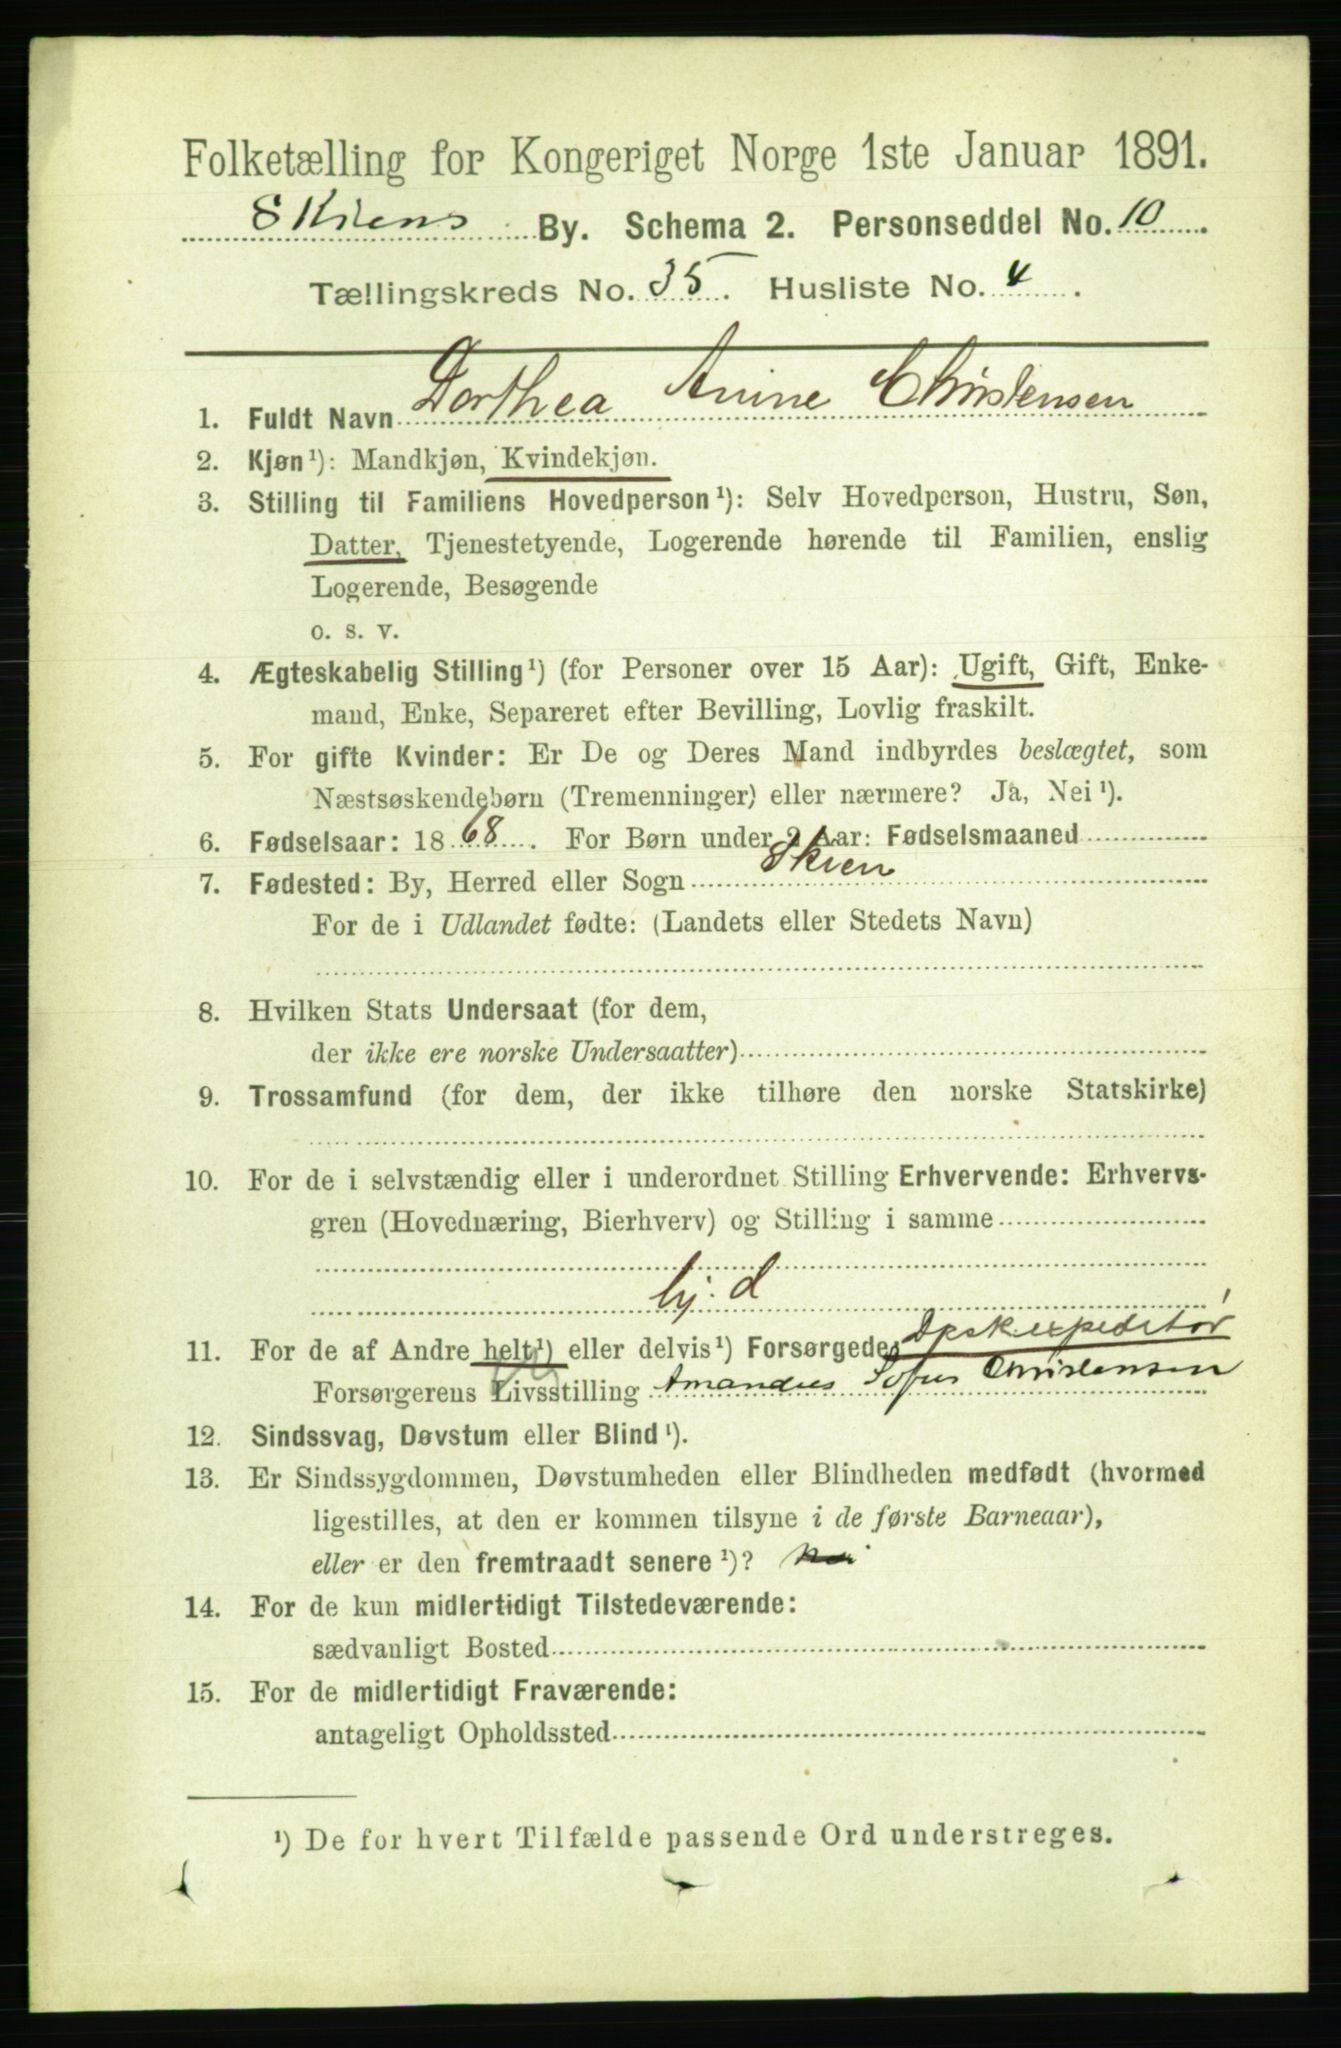 Folketælling for Kongeriget Norge 1ste Januar 1891.
Skiens By. Schema 2. Personseddel No. 10.
Tællingskreds No. 35. Husliste No. 4.
1. Fuldt Navn Dorthea Anine Christensen
2. Kjøn¹): Mandkjøn, Kvindekjøn.
3. Stilling til Familiens Hovedperson¹): Selv Hovedperson, Hustru, Søn,
Datter, Tjenestetyende, Logerende hørende til Familien, enslig
Logerende, Besøgende
o. s. v.
4. Ægteskabelig Stilling¹) (for Personer over 15 Aar): Ugift, Gift, Enke-
mand, Enke, Separeret efter Bevilling, Lovlig fraskilt.
5. For gifte Kvinder: Er De og Deres Mand indbyrdes beslægtet, som
Næstsøskendebørn (Tremenninger) eller nærmere? Ja, Nei¹).
6. Fødselsaar: 1868. For Børn under 2 Aar: Fødselsmaaned
7. Fødested: By, Herred eller Sogn Skien
For de i Udlandet fødte: (Landets eller Stedets Navn)
8. Hvilken Stats Undersaat (for dem,
der ikke ere norske Undersaatter)
9. Trossamfund (for dem, der ikke tilhøre den norske Statskirke)
10. For de i selvstændig eller i underordnet Stilling Erhvervende: Erhvervs-
gren (Hovednæring, Bierhverv) og Stilling i samme
hj. d
11. For de af Andre helt¹) eller delvis¹) Forsørgede, Dpskexpeditør
Forsørgerens Livsstilling Amandus Sofus Christensen
12. Sindssvag, Døvstum eller Blind¹).
13. Er Sindssygdommen, Døvstumheden eller Blindheden medfødt (hvormed
ligestilles, at den er kommen tilsyne i de første Barneaar),
eller er den fremtraadt senere¹)? Nei
14. For de kun midlertidigt Tilstedeværende:
sædvanligt Bosted
15. For de midlertidigt Fraværende:
antageligt Opholdssted
¹) De for hvert Tilfælde passende Ord understreges.